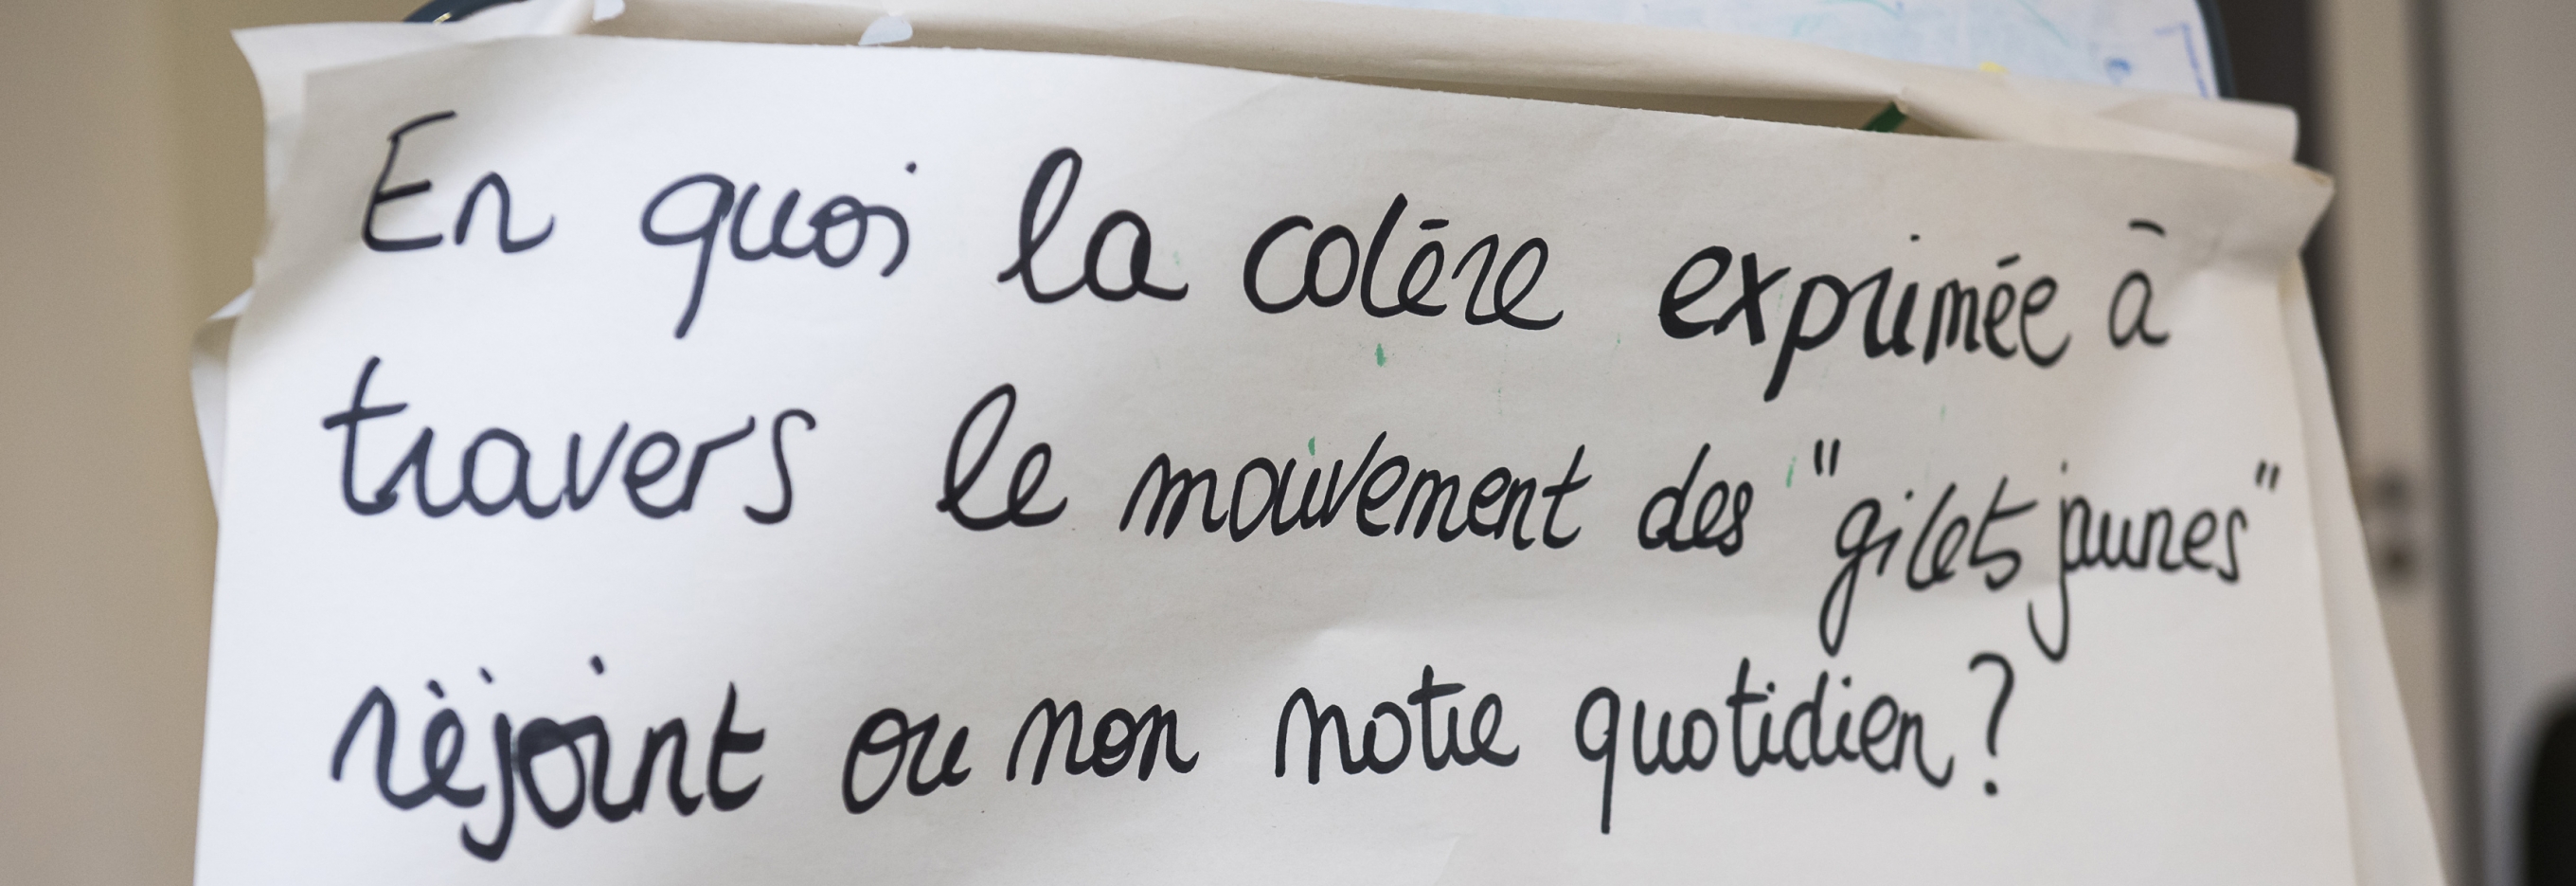 En quoi la colère exprimée à
travers le mouvement des "gilets jaunes"
réjoint ou non notre quotidien ?